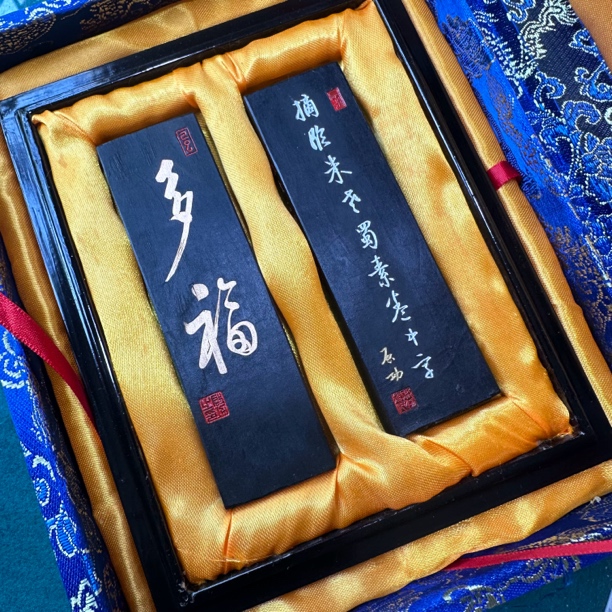 多福
摘临米老蜀素卷中字
启功